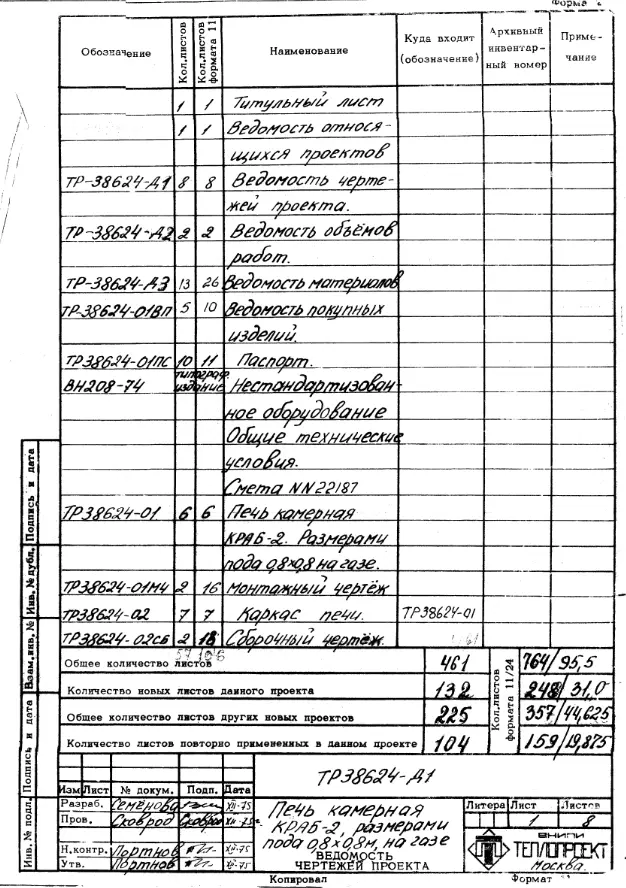 Форма 2
Обозначение Кол.листов Кол.листов формата 11 Наименование Куда входит (обозначение) Архивный инвентарный номер Примечание
1 1 Титульный лист
1 1 Ведомость относя-
щихся проектов
ТР-38624-Д1 8 8 Ведомость черте-
жей проекта.
ТР-38624-Д2 2 2 Ведомость объёмов
работ.
ТР-38624-Д3 13 26 Ведомость материалов
ТР-38624-01ВП 5 10 Ведомость покупных
изделий.
ТР38624-01ПС 10 11 Паспорт.
ВН208-74 типограф. издание Нестандартизован-
ное оборудование
Общие технические
условия.
Смета NN22187
ТР38624-01 6 6 Печь камерная
КРАБ-2. Размерами
пода 0,8х0,8 на газе.
ТР38624-01МЧ 2 16 Монтажный чертёж
ТР38624-02 7 7 Каркас печи. ТР38624-01
ТР38624-02СБ 2 18 Сборочный чертеж.
Общее количество листов 461 Кол.листов формата 11/24 764/95,5
Количество новых листов данного проекта 132 248/31,0
Общее количество листов других новых проектов 225 357/44,625
Количество листов повторно примененных в данном проекте 104 159/19,875
Инв. № подл. Подпись и дата Взам.инв. № Инв. № дубл. Подпись и дата
ТР38624-Д1
Изм Лист № докум. Подп. Дата
Разраб. Семёнова XII-75
Пров. Сковрод XII-75
Н.контр. Портнов XII-75
Утв. Портнов XII-75
Печь камерная
КРАБ-2, размерами
пода 0,8х0,8м, на газе
ВЕДОМОСТЬ
ЧЕРТЕЖЕЙ ПРОЕКТА
Литера Лист Листов
1 8
ВНИПИ
ТЕПЛОПРОЕКТ
Москва
Копировал Формат